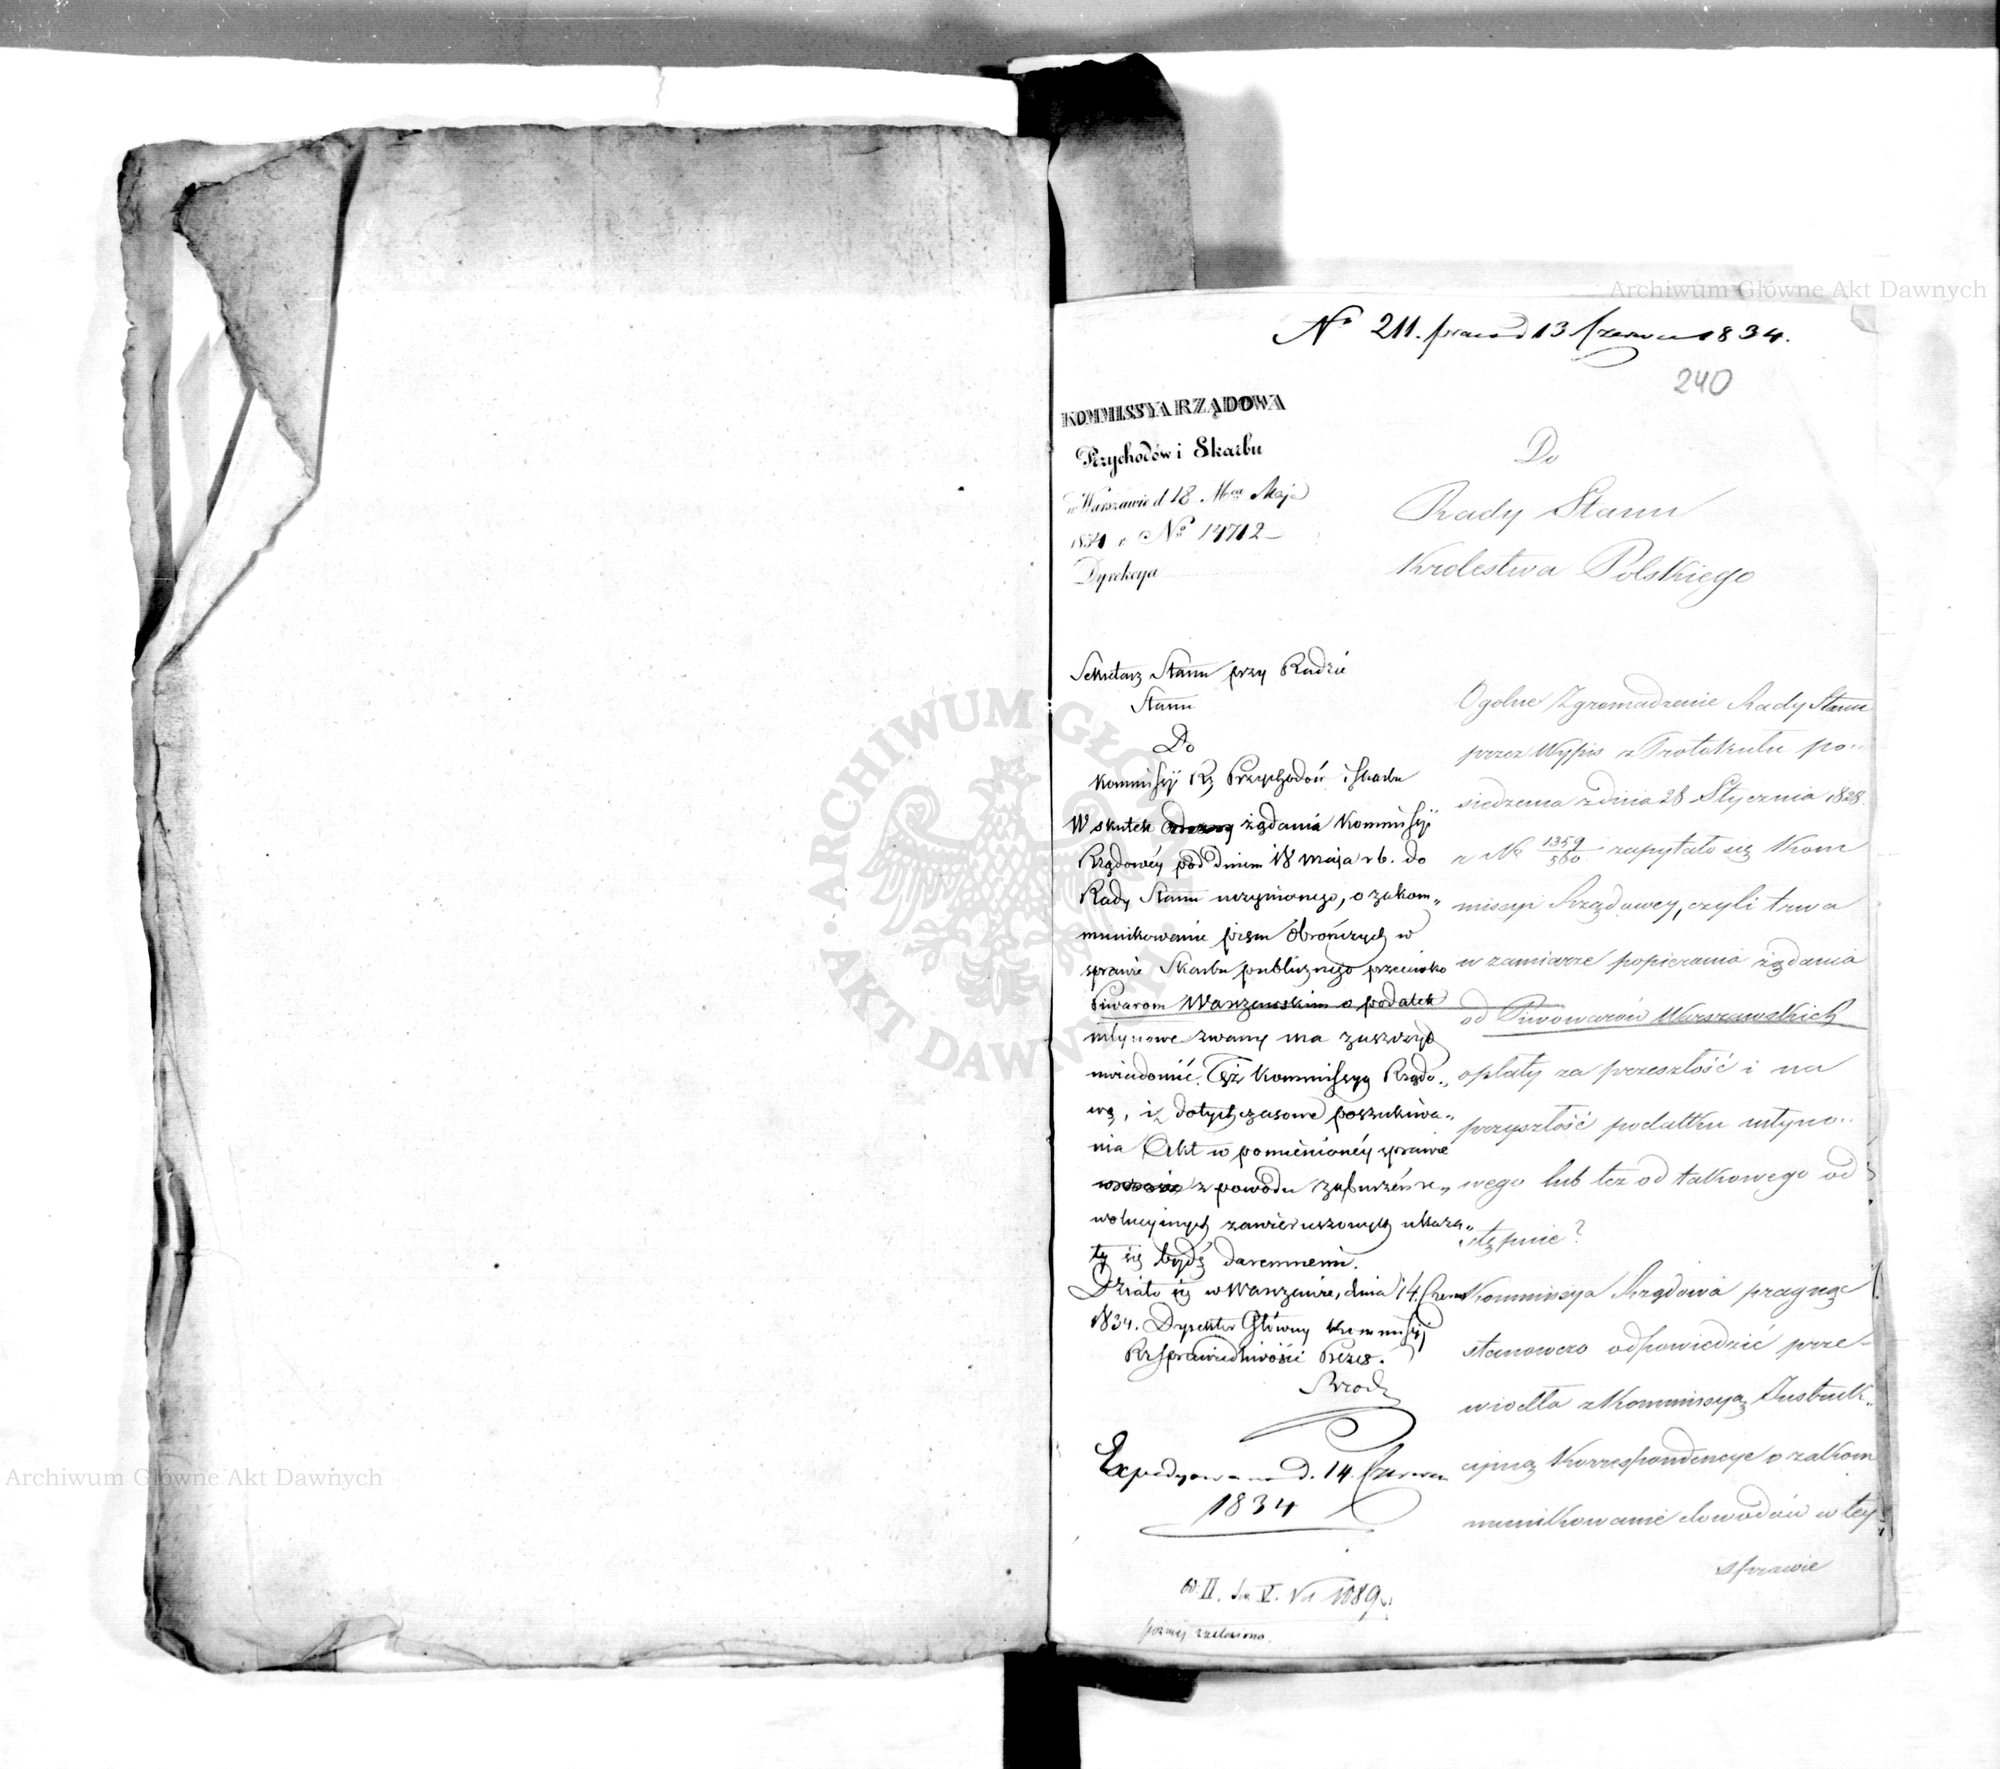 Archiwum Główne Akt Dawnych
Nº 211. prae d 13 Czerwca 1834.
240
KOMMISSYA RZĄDOWA
Przychodów i Skarbu
w Warszawie d 18 Mca Maja
1834 r Nº 14712
Dyrekcya
Do
Rady Stanu
Krolestwa Polskiego
Sekretarz Stanu przy Radzie
Stanu
Do
Kommissyi Rz Przychodów i Skarbu
W skutek żądania Kommissyi
Rządowéy pod dniem 18 maja r b. do
Rady Stanu uczynionego, o zakom„
munikowanie pism obrończych w
sprawie Skarbu publicznego przeciwko
Piwarom Warszawskim o podatek
młynowe zwany ma zaszczyt
uwiadomić Tęż Kommissyą Rządo„
wą, iż dotychczasowe poszukiwa„
nia Akt w pomienionéy sprawie
z powodu zaburzeń re„
wolucyinych zawieruszonych okaza„
ły się bydź daremnemi.
Działo się w Warszawie, dnia 14. Czerw
1834. Dyrektor Główny Kommissyi
Rz Sprawiedliwości Prezes.
Expedyowano d. 14. Czerwca
1834
Ogolne Zgromadzenie Rady Stanu
przez Wypis z Protokułu po„
siedzenia z dnia 28 Stycznia 1828
z Nº 1359/560 zapytało się Kom
missyi Rządowey, czyli trwa
w zamiarze popierania żądania
od Piwowarów Warszawskich
opłaty za przeszłość i na
przyszłość podatku młyno„
wego lub też od takowego od
stępuie?
Kommissya Rządowa pragnąc
stanowczo odpowiedzić prze-
wiodła z Kommissyą Instruk„
cyiną Korrespondencye o zakom
munikowanie dowodów w tey
sprawie
ARCHIWUM GŁÓWNE AKT DAWNYCH
Archiwum Główne Akt Dawnych